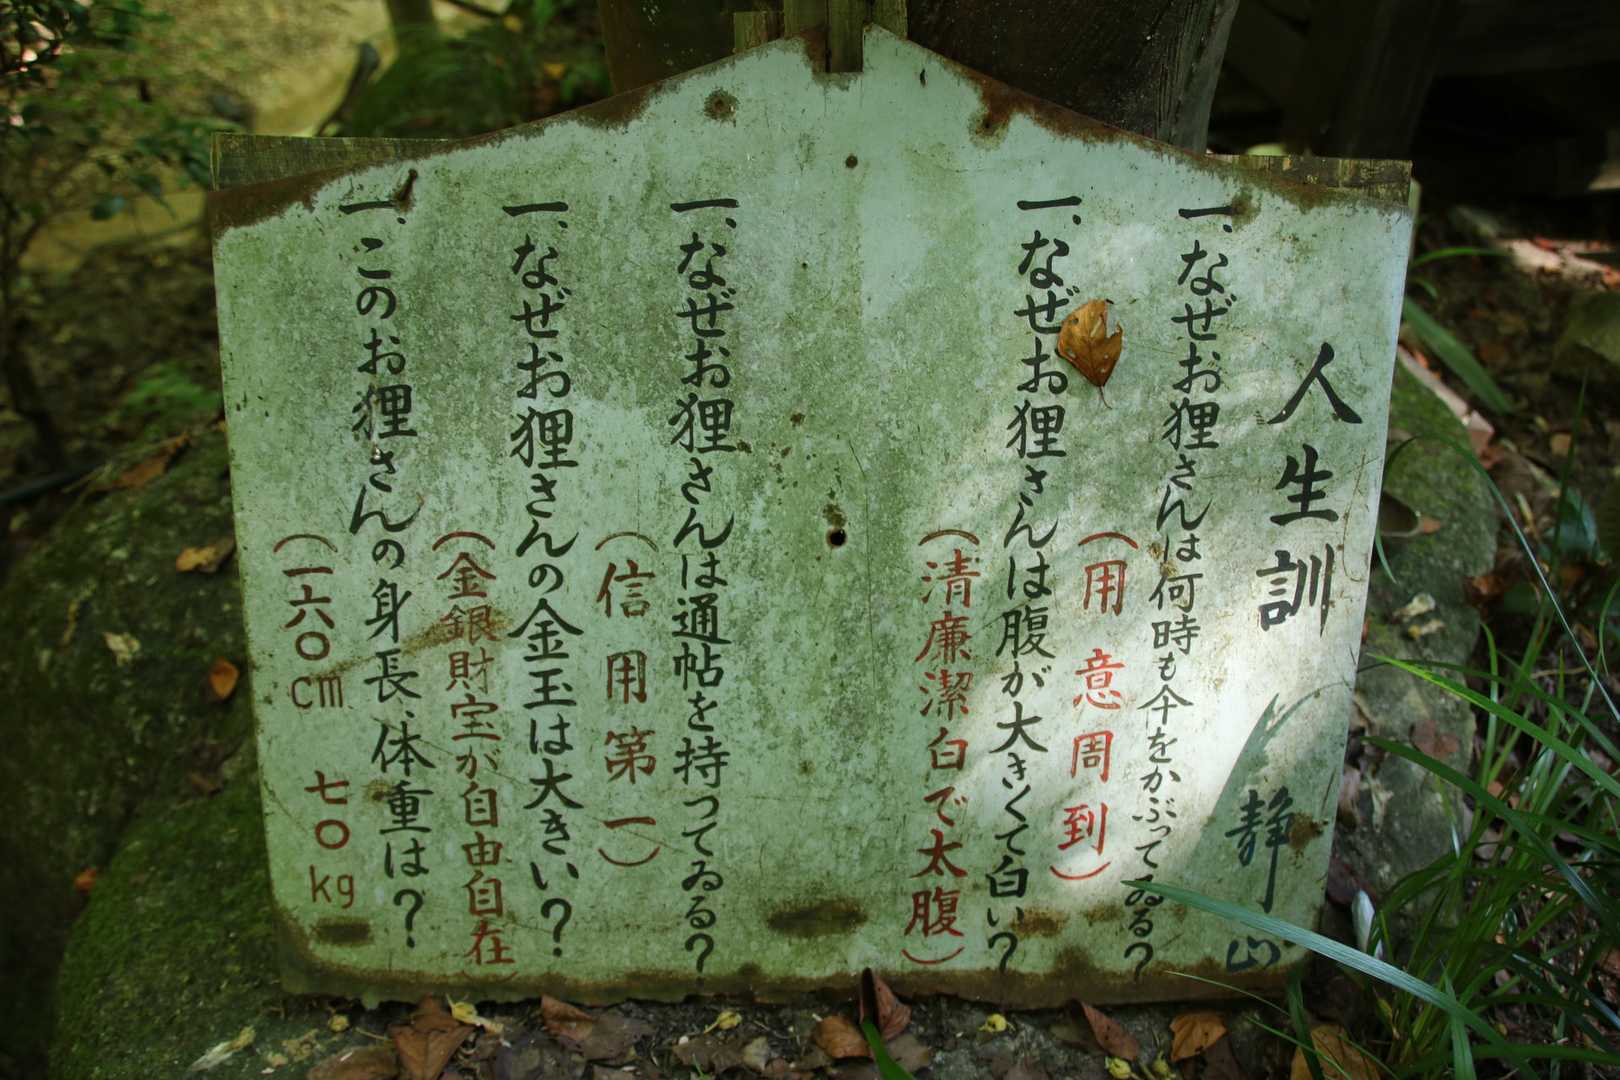 人生訓 静山
一、なぜお狸さんは何時も傘をかぶってゐる?
(用意周到)
一、なぜお狸さんは腹が大きくて白い?
(清廉潔白で太腹)
一、なぜお狸さんは通帖を持つてゐる?
(信用第一)
一、なぜお狸さんの金玉は大きい?
(金銀財宝が自由自在)
一、このお狸さんの身長、体重は?
(一六〇cm 七〇kg